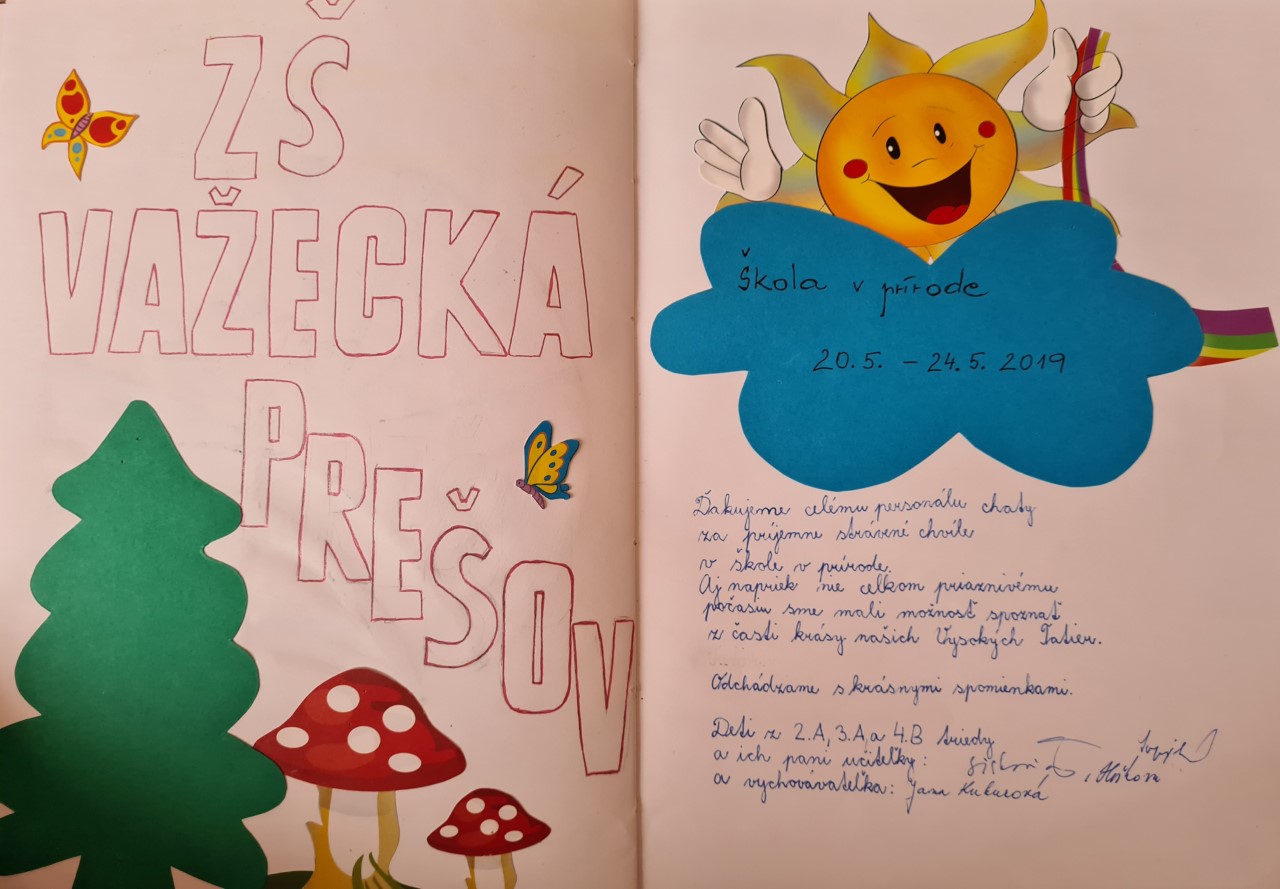 ZŠ
VAŽECKÁ
PREŠOV
Škola v prírode
20.5. – 24.5. 2019
Ďakujeme celému personálu chaty
za príjemne strávené chvíle
v škole v prírode.
Aj napriek nie celkom priaznivému
počasiu sme mali možnosť spoznať
z časti krásy našich Vysokých Tatier.
Odchádzame s krásnymi spomienkami.
Deti z 2.A, 3.A, a 4.B triedy
a ich pani učiteľky:
a vychovávateľka: Jana